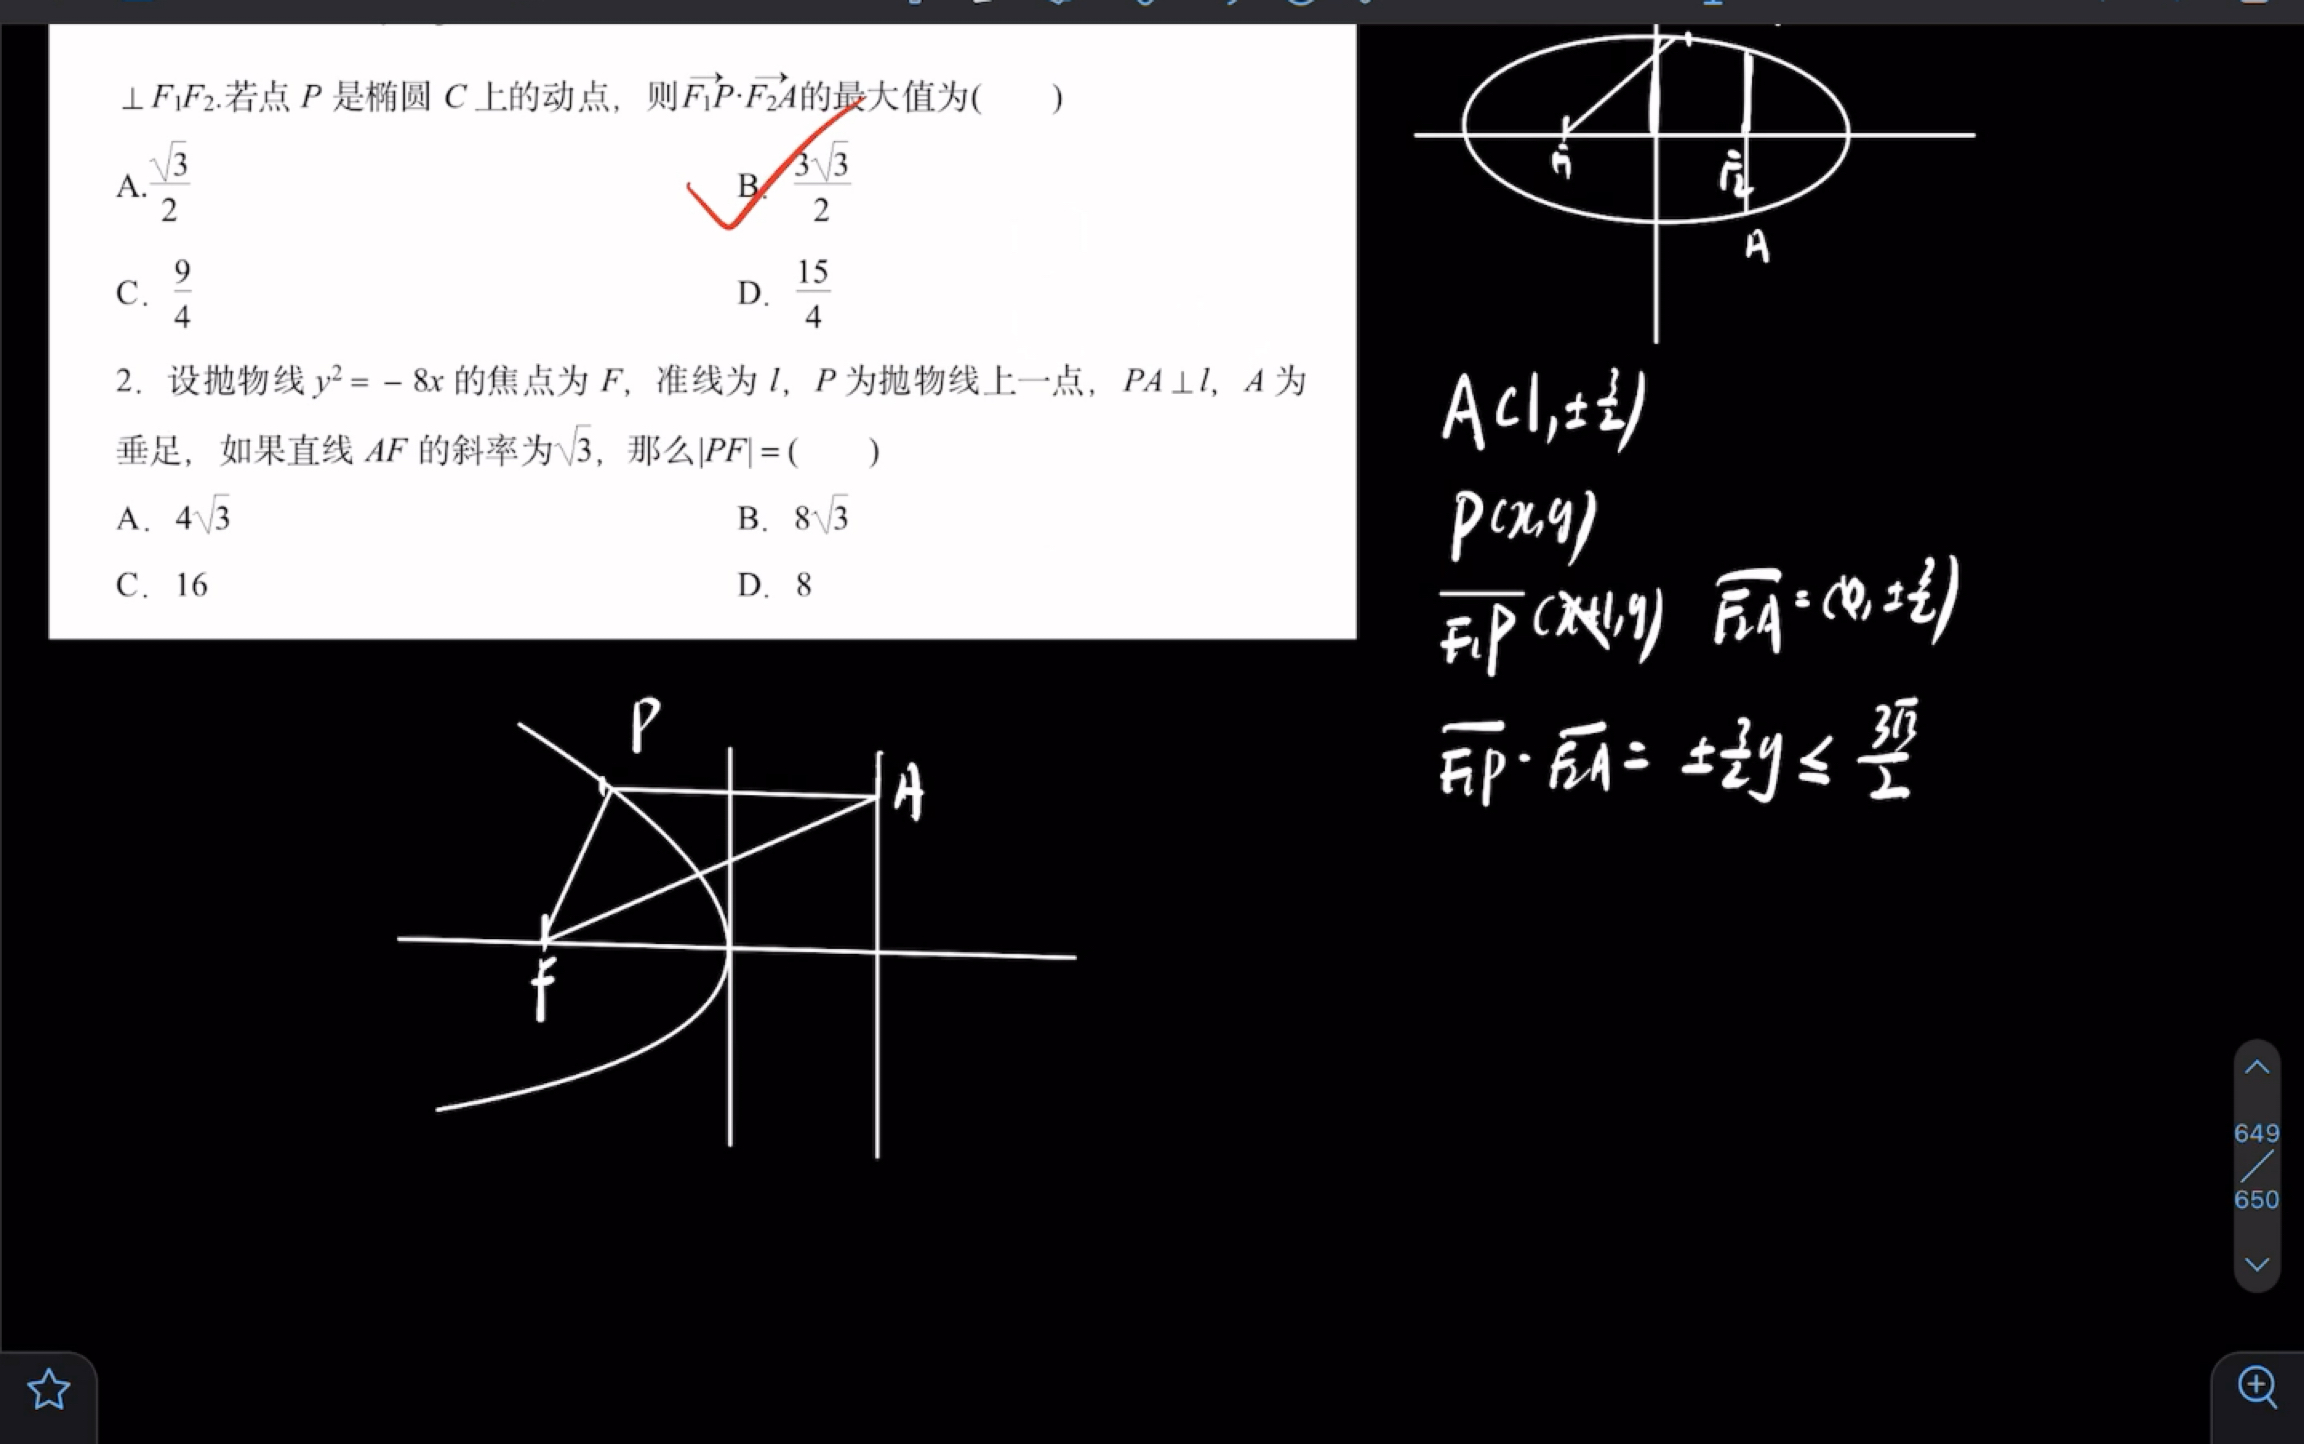 ⊥F₁F₂.若点 P 是椭圆 C 上的动点，则F₁P·F₂A的最大值为(　　)
A. √3/2　　B. 3√3/2
C. 9/4　　D. 15/4
2. 设抛物线 y² = －8x 的焦点为 F，准线为 l，P 为抛物线上一点，PA⊥l，A 为
垂足，如果直线 AF 的斜率为√3，那么|PF| = (　　)
A. 4√3　　B. 8√3
C. 16　　D. 8
P
A
F
F₂
A
A(1,±3/2)
P(x,y)
F₁P(x+1,y)　F₂A=(0,±3/2)
F₁P·F₂A= ±3/2y ≤ 3√3/2
649
/
650